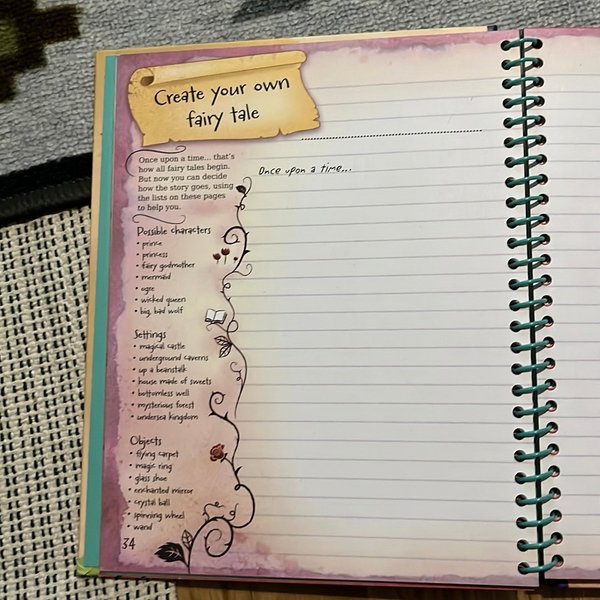 Create your own
fairy tale
Once upon a time... that's
how all fairy tales begin.
But now you can decide
how the story goes, using
the lists on these pages
to help you.
Possible characters
• prince
• princess
• fairy godmother
• mermaid
• ogre
• wicked queen
• big, bad wolf
Settings
• magical castle
• underground caverns
• up a beanstalk
• house made of sweets
• bottomless well
• mysterious forest
• undersea kingdom
Objects
• flying carpet
• magic ring
• glass shoe
• enchanted mirror
• crystal ball
• spinning wheel
• wand
34
Once upon a time...